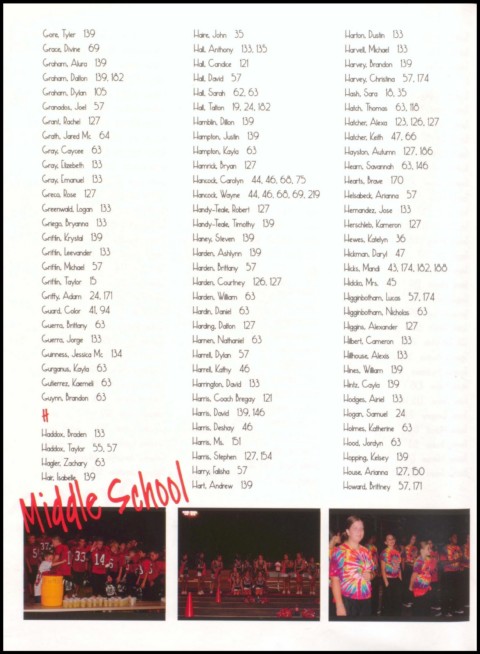 Gore, Tyler 139
Grace, Divine 69
Graham, Alura 139
Graham, Dalton 139, 182
Graham, Dylan 105
Granados, Joel 57
Grant, Rachel 127
Grath, Jared Mc 64
Gray, Caycee 63
Gray, Elizebeth 133
Gray, Emanuel 133
Greco, Rose 127
Greenwald, Logan 133
Griego, Bryanna 133
Griffin, Krystal 139
Griffin, Leevander 133
Griffin, Michael 57
Griffin, Taylor 15
Griffy, Adam 24, 171
Guard, Color 41, 94
Guerra, Brittany 63
Guerra, Jorge 133
Guinness, Jessica Mc 134
Gurganus, Kayla 63
Gutierrez, Kaemeli 63
Guynn, Brandon 63
H
Haddox, Braden 133
Haddox, Taylor 55, 57
Hagler, Zachary 63
Hair, Isabelle 139
Haire, John 35
Hall, Anthony 133, 135
Hall, Candice 121
Hall, David 57
Hall, Sarah 62, 63
Hall, Talton 19, 24, 182
Hamblin, Dillon 139
Hampton, Justin 139
Hampton, Kayla 63
Hamrick, Bryan 127
Hancock, Carolyn 44, 46, 68, 75
Hancock, Wayne 44, 46, 68, 69, 219
Handy-Teale, Robert 127
Handy-Teale, Timothy 139
Haney, Steven 139
Harden, Ashlynn 139
Harden, Brittany 57
Harden, Courtney 126, 127
Harden, William 63
Hardin, Daniel 63
Harding, Dalton 127
Harnen, Nathaniel 63
Harrell, Dylan 57
Harrell, Kathy 46
Harrington, David 133
Harris, Coach Bregay 121
Harris, David 139, 146
Harris, Deshay 46
Harris, Ms. 151
Harris, Stephen 127, 154
Harry, Talisha 57
Hart, Andrew 139
Harton, Dustin 133
Harvell, Michael 133
Harvey, Brandon 139
Harvey, Christina 57, 174
Hash, Sara 18, 35
Hatch, Thomas 63, 118
Hatcher, Alexa 123, 126, 127
Hatcher, Keith 47, 66
Hayston, Autumn 127, 186
Hearn, Savannah 63, 146
Hearts, Brave 170
Helsabeck, Arianna 57
Hernandez, Jose 133
Herschleb, Kameron 127
Hewes, Katelyn 36
Hickman, Daryl 47
Hicks, Mandi 43, 174, 182, 188
Hidclio, Mrs. 45
Higginbotham, Lucas 57, 174
Higginbotham, Nicholas 63
Higgins, Alexander 127
Hilbert, Cameron 133
Hillhouse, Alexis 133
Hines, William 139
Hintz, Cayla 139
Hodges, Airiel 133
Hogan, Samuel 24
Holmes, Katherine 63
Hood, Jordyn 63
Hopping, Kelsey 139
House, Arianna 127, 150
Howard, Brittney 57, 171
Middle School
33
14